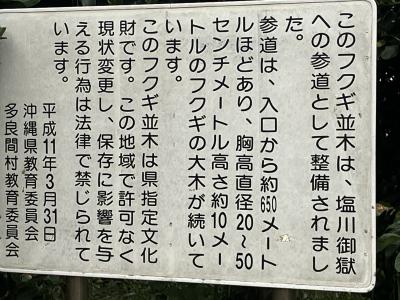 このフクギ並木は、塩川御嶽
への参道として整備されまし
た。
参道は、入口から約650メート
ルほどあり、胸高直径20〜50
センチメートル高さ約10メー
トルのフクギの大木が続いて
います。
このフクギ並木は県指定文化
財です。この地域で許可なく
現状変更し、保存に影響を与
える行為は法律で禁じられて
います。
平成11年3月31日
沖縄県教育委員会
多良間村教育委員会